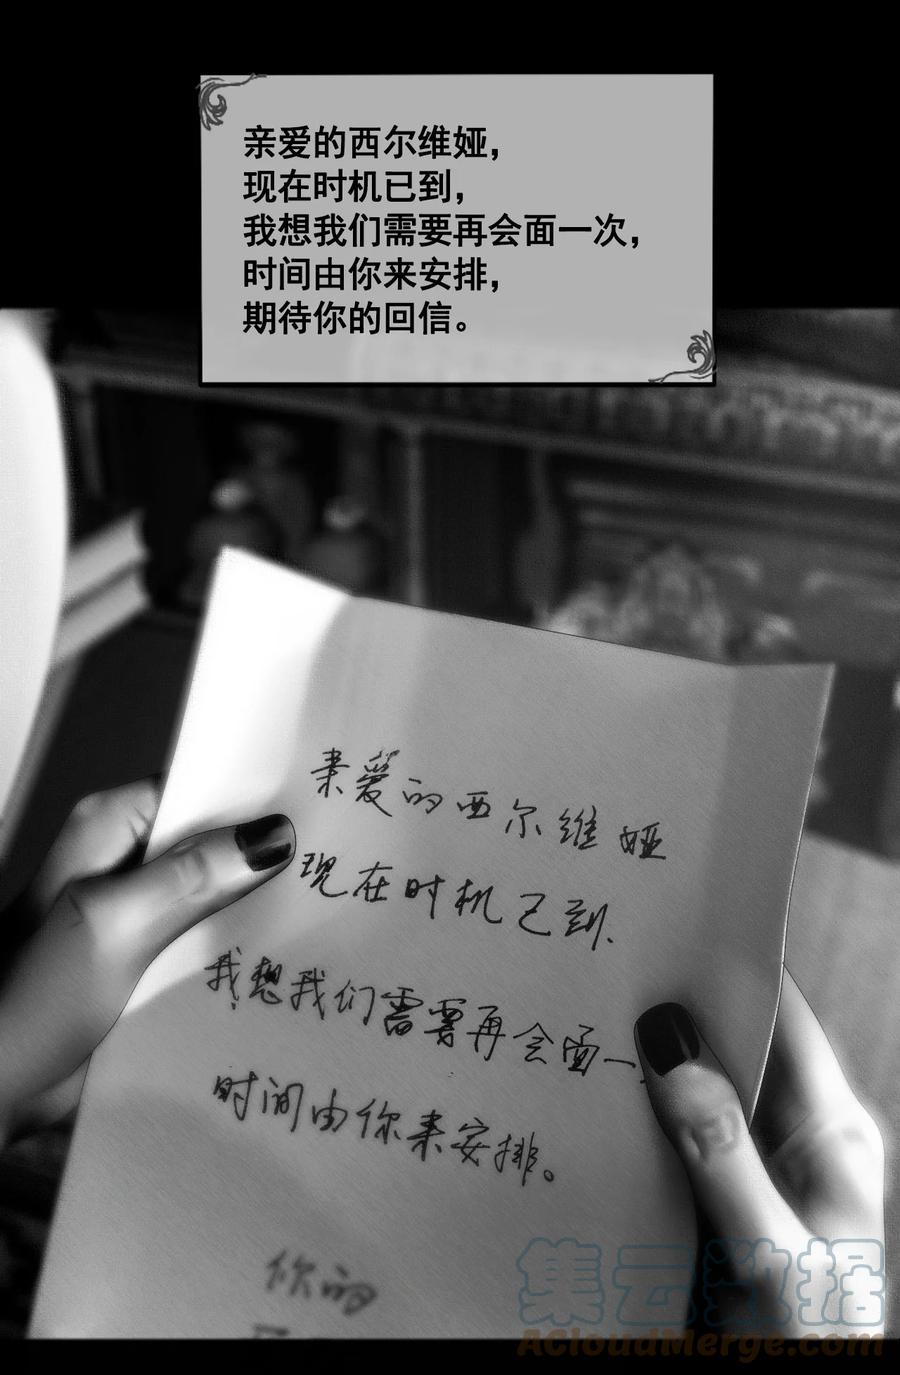 亲爱的西尔维娅，
现在时机已到，
我想我们需要再会面一次，
时间由你来安排，
期待你的回信。
亲爱的西尔维娅
现在时机已到.
我想我们需要再会面一
时间由你来安排。
你的
集云数据
ACloudMerge.com